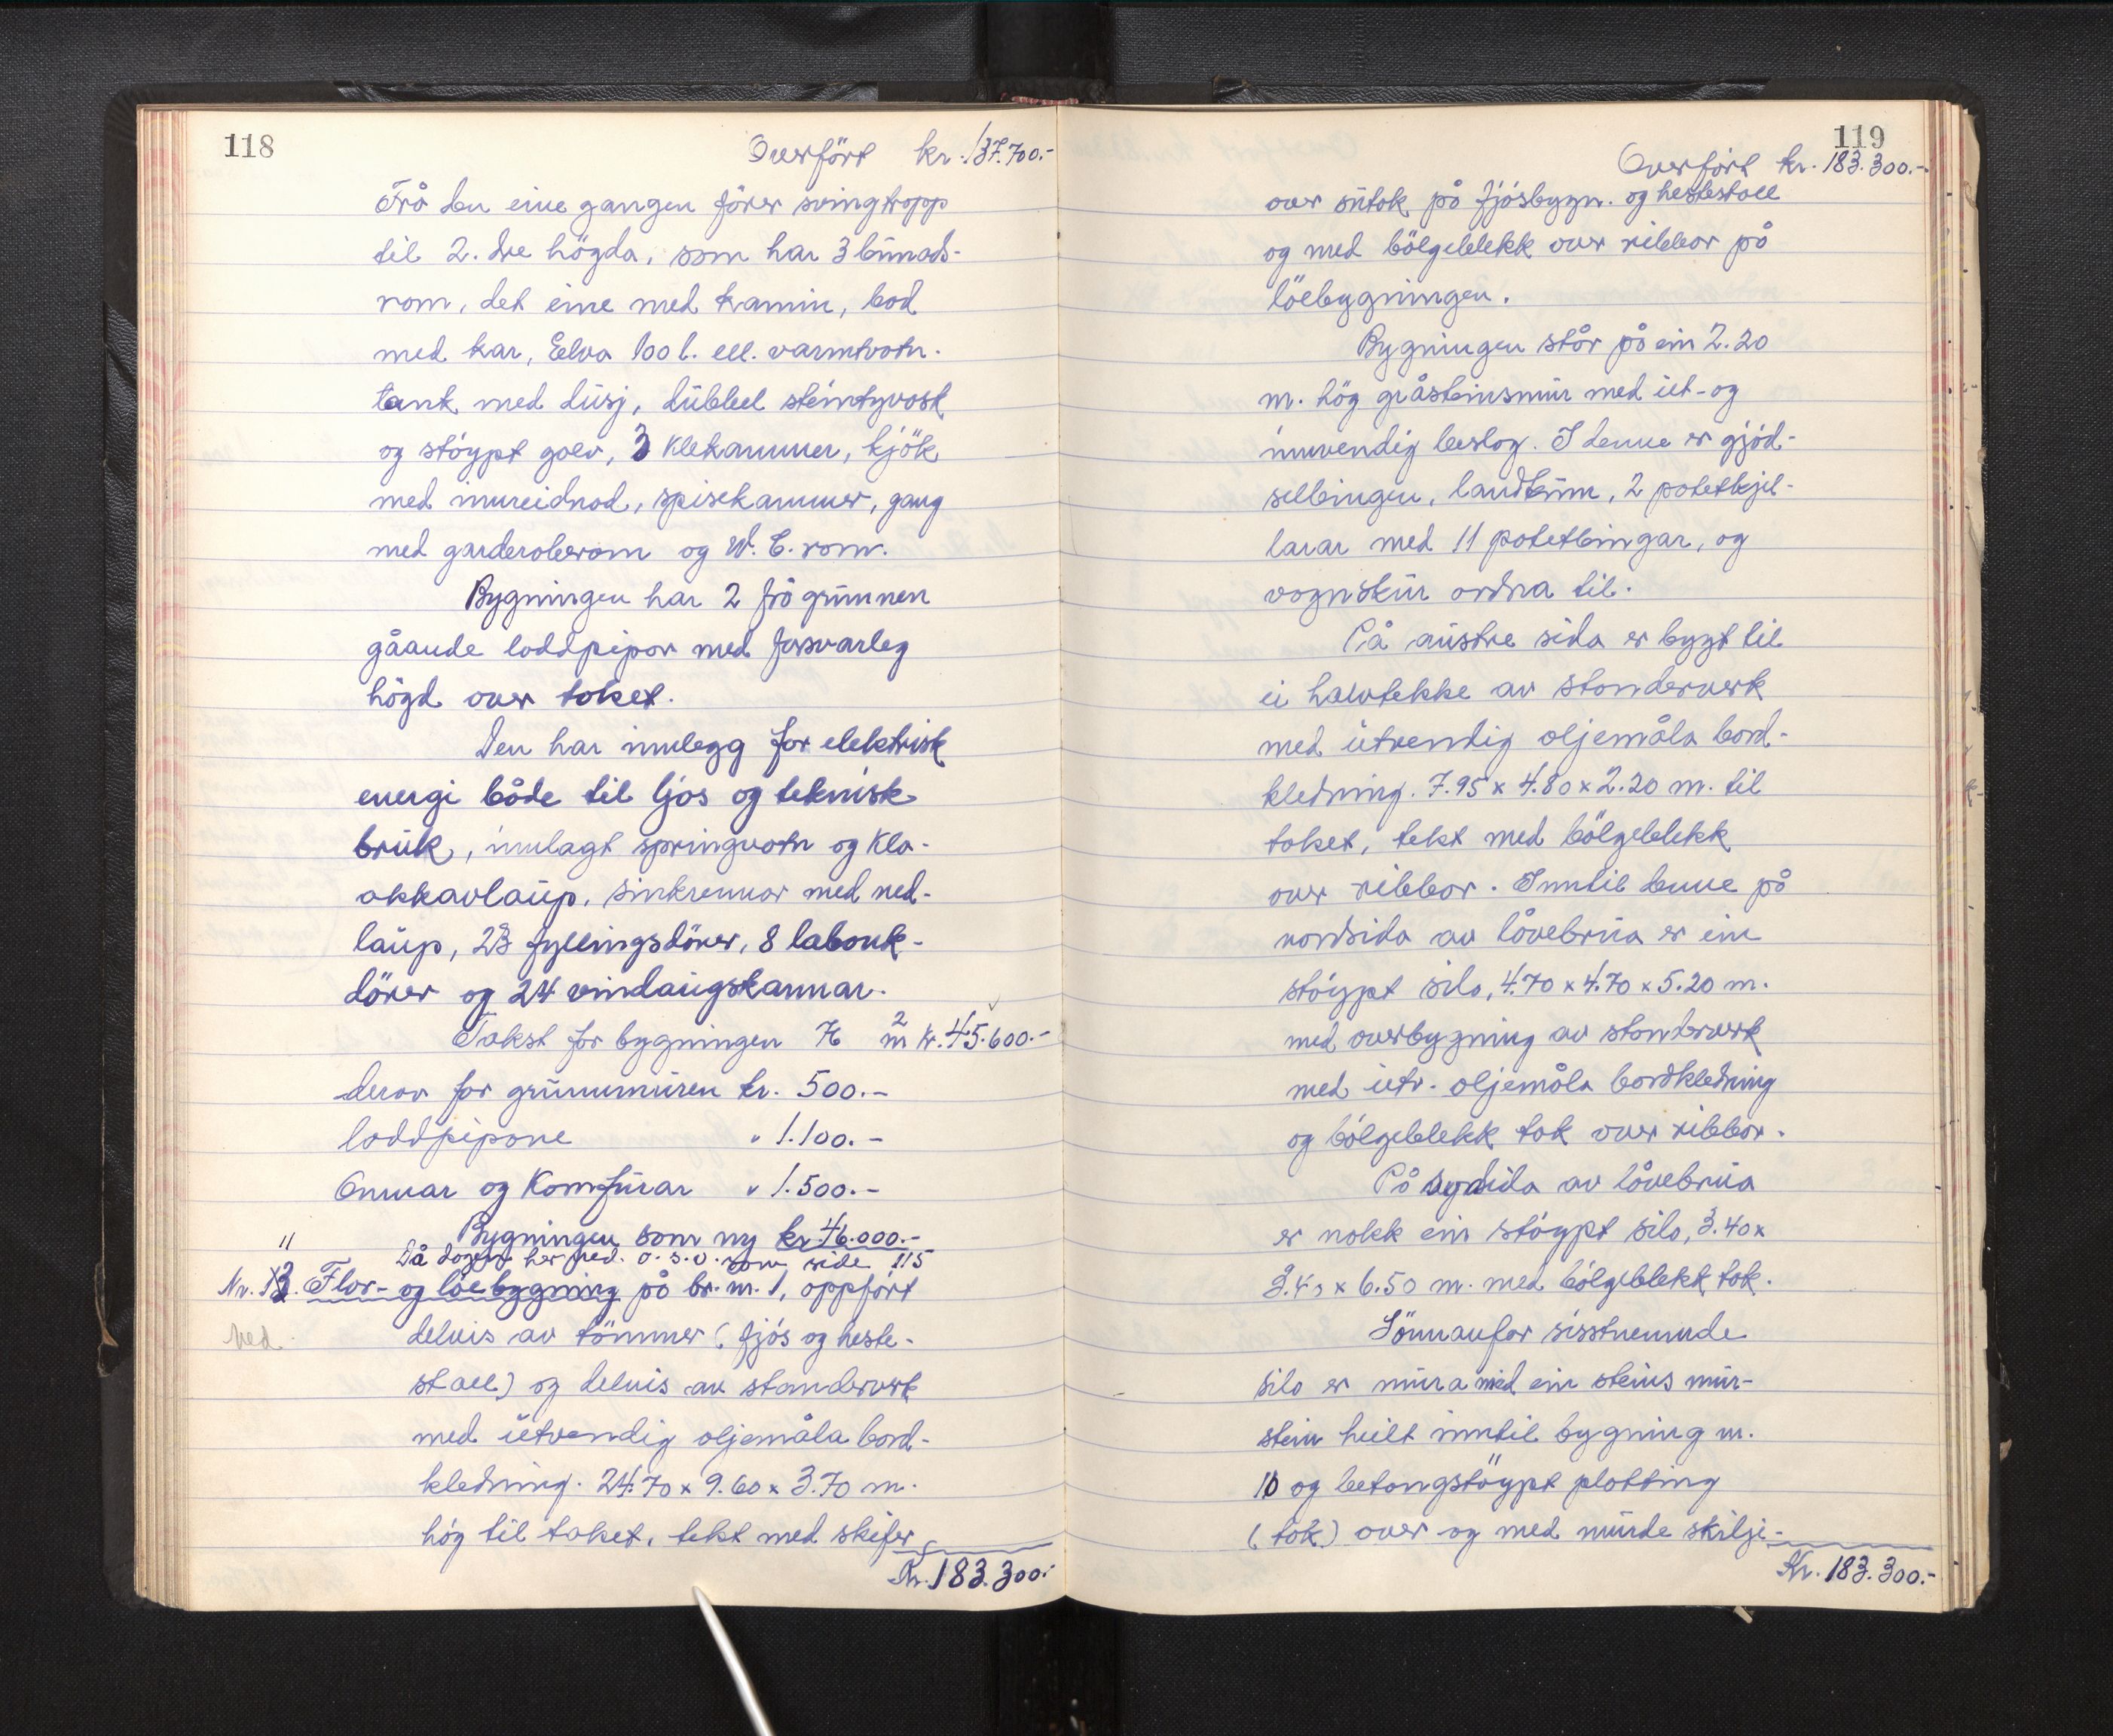 118
Overfört kr. 137.700.-
Frå den eine gangen förer svingtropp
til 2. dre högda, som har 3 bunads-
rom, det eine med kamin, bad
med kar, Elva 100 l. ell. varmtvatn.
tank med dusj, dubbel steintyvask
og stöypt golv, 3 klekammer, kjök
med innreidnad, spisekammer, gang
med garderoberom og W. C. rom.
Bygningen har 2 frå grunnen
gåande loddpipor med forsvarleg
högd over taket.
Den har innlegg for elektrisk
energi både til ljos og teknisk
bruk, innlagt springvatn og klo-
akkavlaup, sinkrennor med ned-
laup, 23 fyllingsdörer, 8 labank-
dörer og 24 vindaugskarmar.
Takst for bygningen 76 m2 kr. 45.600.-
derav for grunnmuren kr. 500.-
loddpipone " 1.100.-
Omnar og Komfurar " 1.500.-
Bygningen som ny kr 46.000.-
11 Då dagen her ned. o. s. v. som side 115
Nr. 13. Flor- og löebygning på br. nr. 1, oppfört
Ved.
delvis av tömmer (fjös og heste-
stall) og delvis av standerverk
med utvendig oljemåla bord-
kledning. 24.70 x 9.60 x 3.70 m.
hög til taket, tekt med skifer
Kr. 183.300.-
119
Overfört kr. 183.300.-
over sutak på fjösbygn. og hestestall
og med bölgeblekk over ribbor på
löebygningen.
Bygningen står på ein 2.20
m. hög gråsteinsmur med ut- og
innvendig beslag. I denne er gjöd-
selbingen, landkum, 2 potetkjel-
larar med 11 potetbingar, og
vognskur ordna til.
På austre sida er bygt til
ei halvtekke av standerverk
med utvendig oljemåla bord-
kledning. 7.95 x 4.80 x 2.20 m. til
taket, tekt med bölgeblekk
over ribbor. Inntil denne på
nordsida av låvebrua er ein
stöypt silo, 4.70 x 4.70 x 5.20 m.
med overbygning av standerverk
med utv. oljemåla bordkledning
og bölgeblekk tak over ribbor.
På sydsida av låvebrua
er nokk ein stöypt silo, 3.40 x
3.40 x 6.50 m. med bölgeblekk tak.
Sönnanfor sisstnemnde
silo er mura med ein steins mur-
stein heilt inntil bygning nr.
10 og betongstöypt platting
(tak) over og med murde skilje-
Kr. 183.300.-